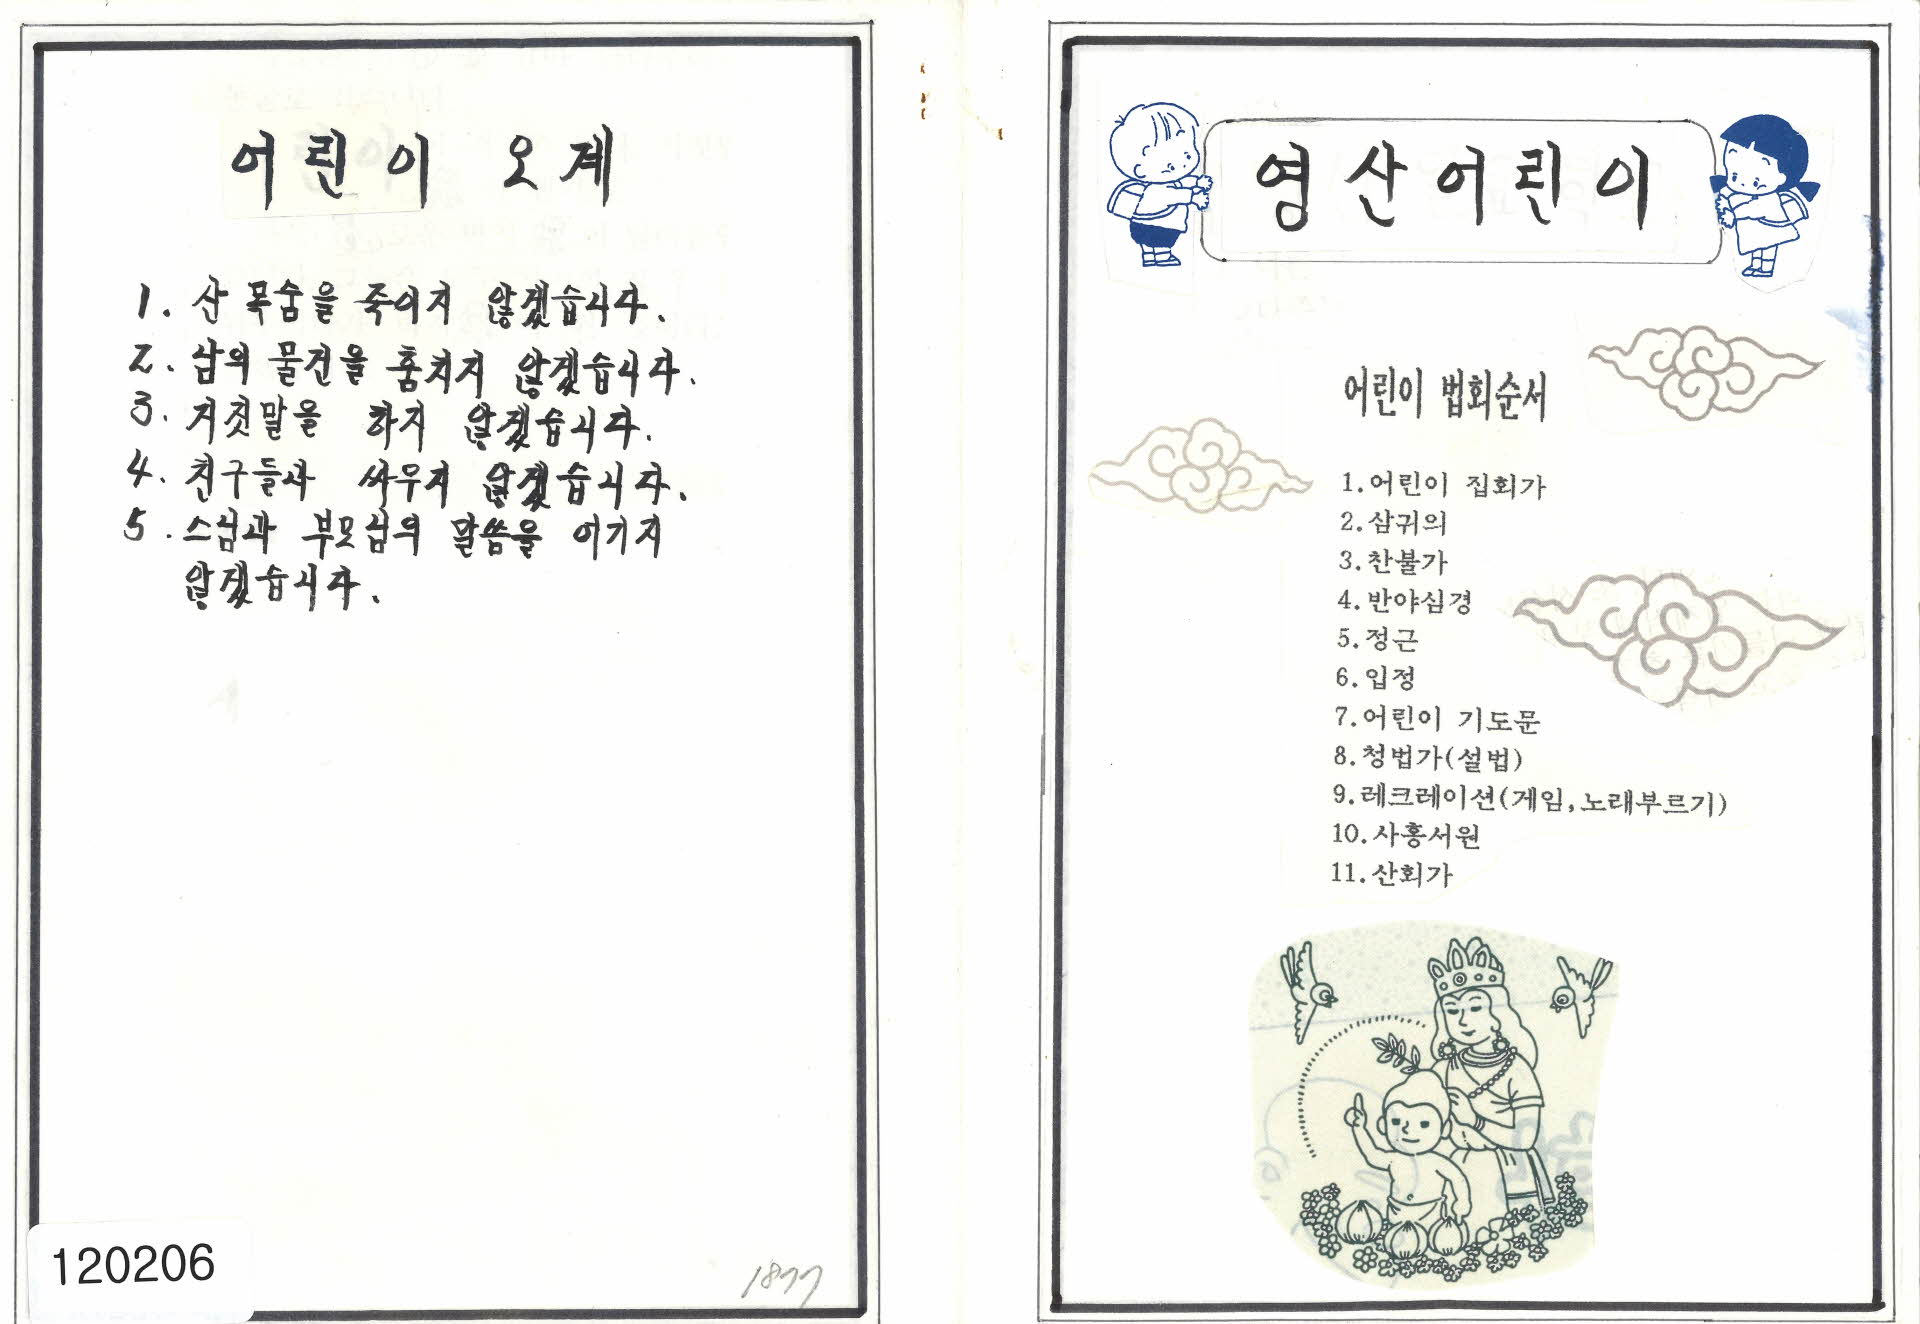 어린이 오계
1. 산 목숨을 죽이지 않겠습니다.
2. 남의 물건을 훔치지 않겠습니다.
3. 거짓말을 하지 않겠습니다.
4. 친구들과 싸우지 않겠습니다.
5. 스님과 부모님의 말씀을 어기지
않겠습니다.
120206
1877
영산어린이
어린이 법회순서
1.어린이 집회가
2.삼귀의
3.찬불가
4.반야심경
5.정근
6.입정
7.어린이 기도문
8.청법가(설법)
9.레크레이션(게임,노래부르기)
10.사홍서원
11.산회가